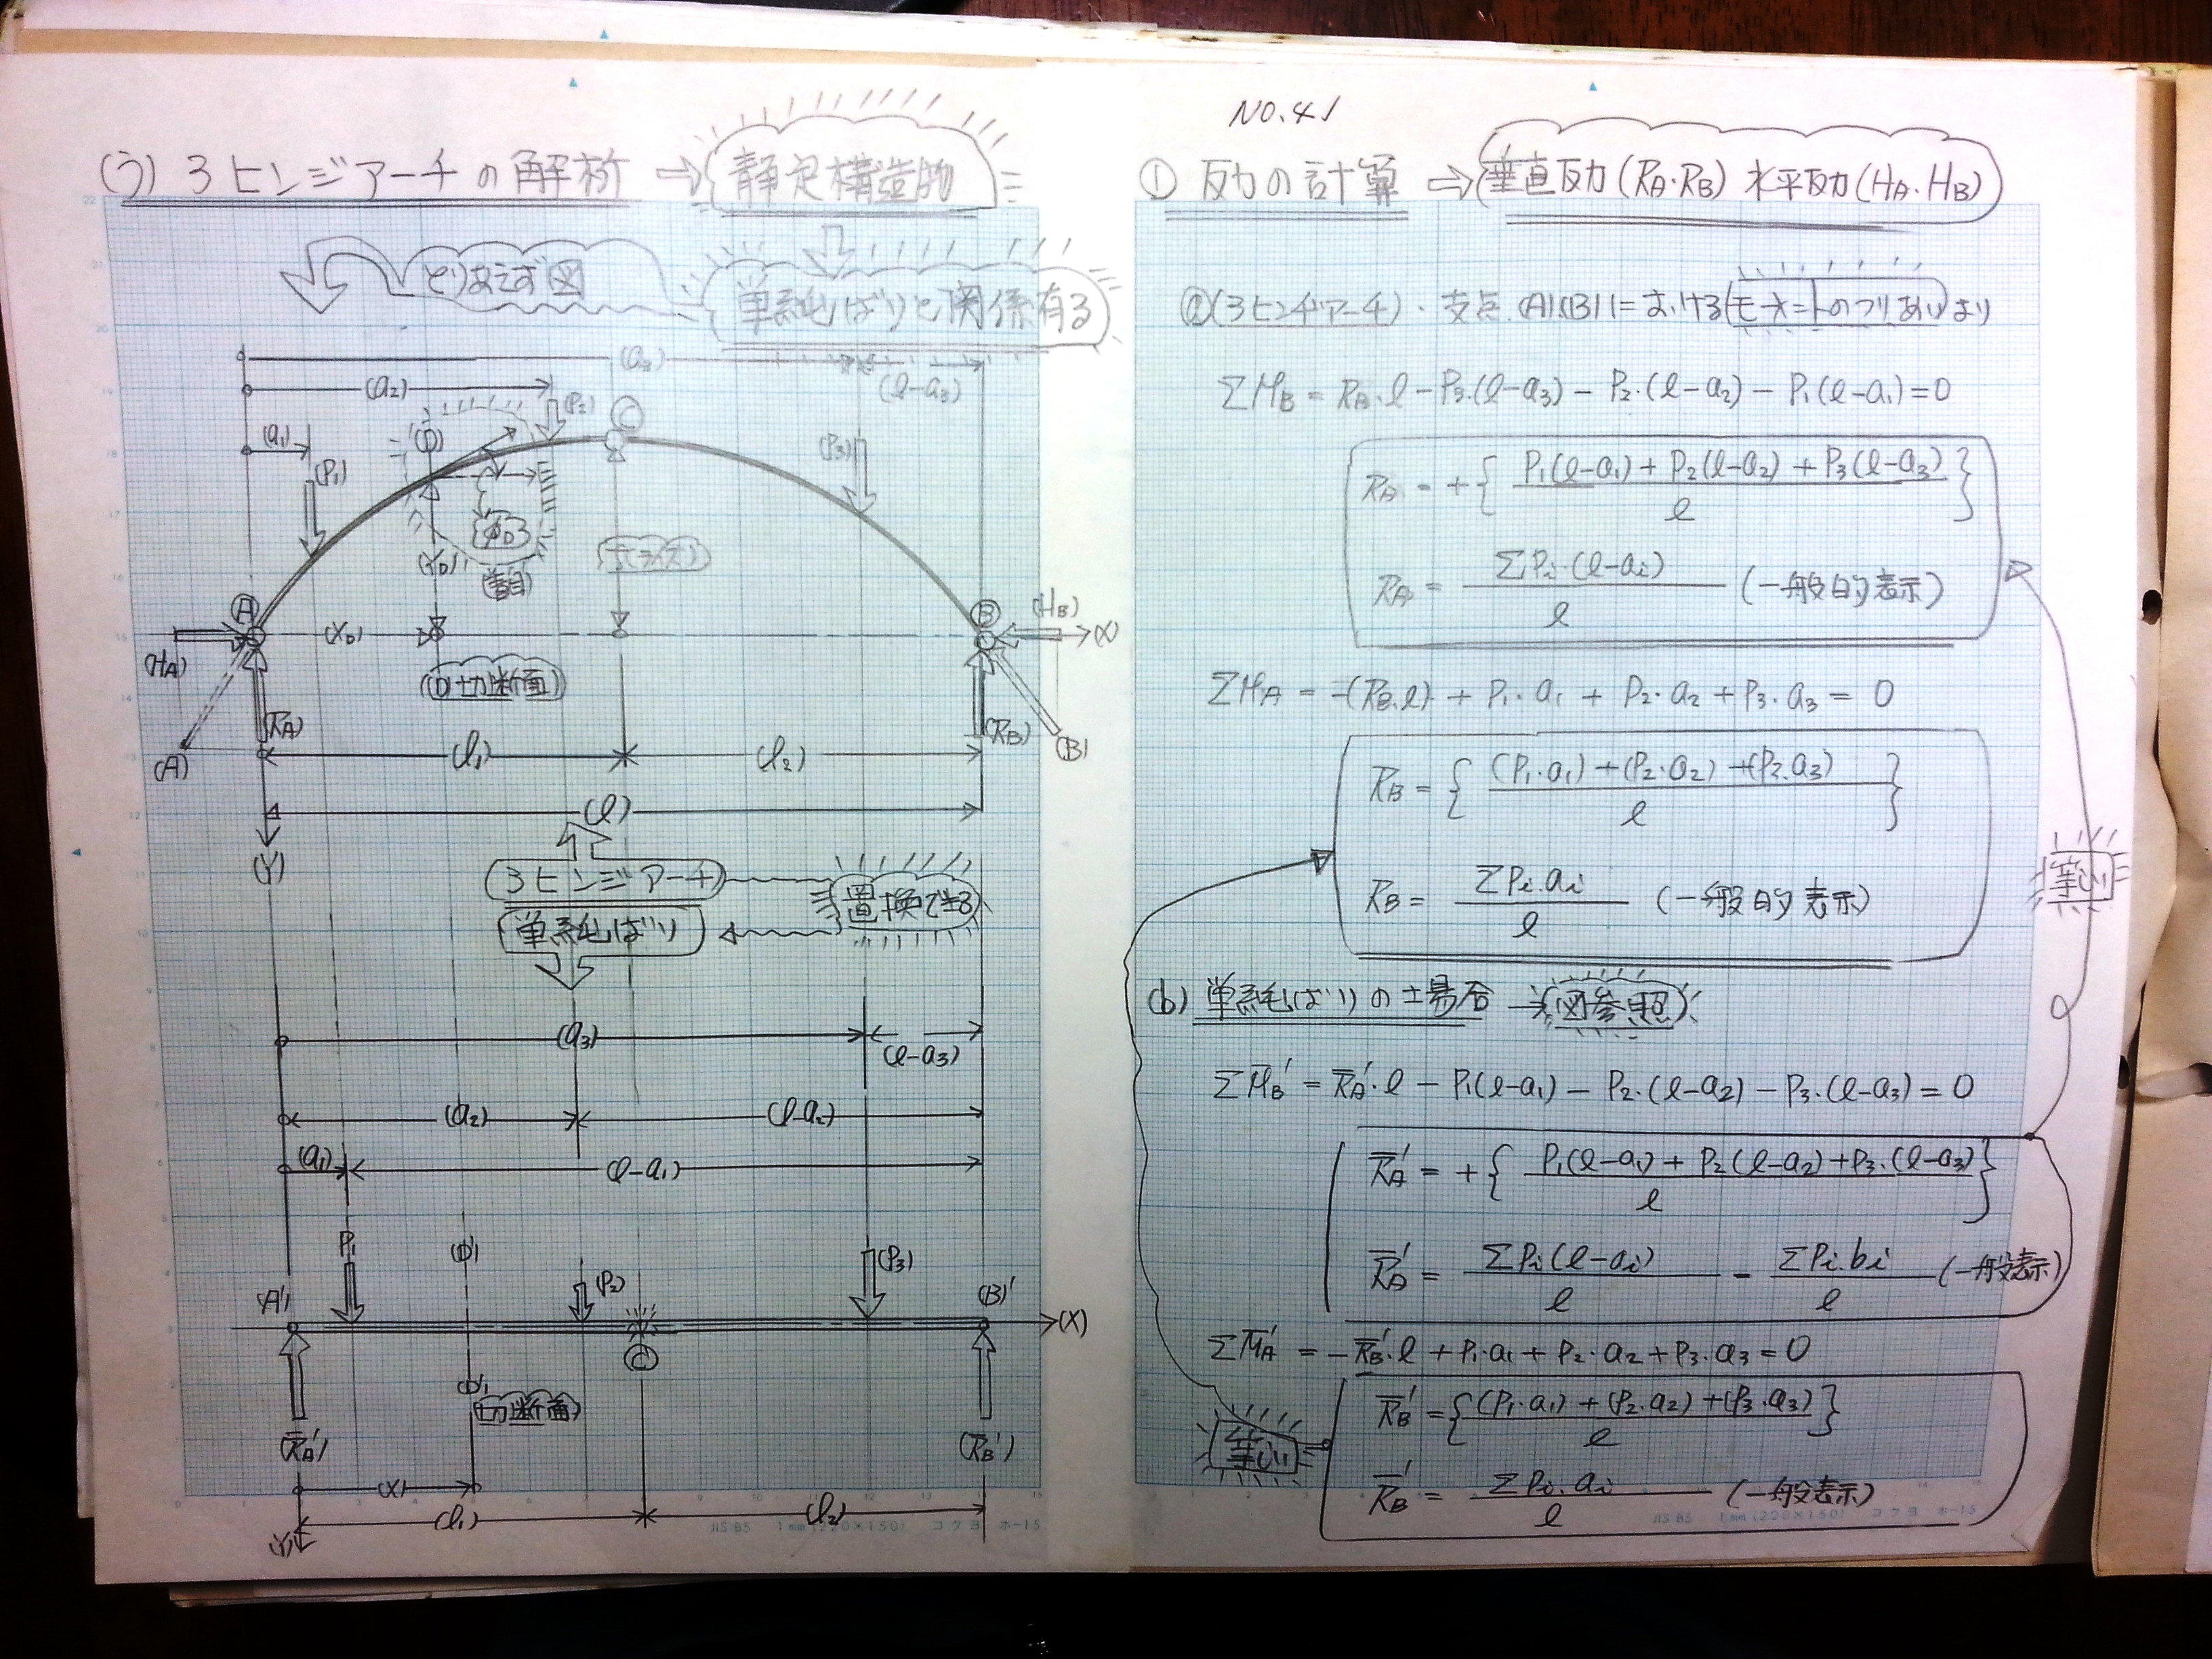 NO.41
(う) 3ヒンジアーチの解析 ⇒ 静定構造的
とりあえず図
単純ばりと関係有る
(a3)
(a2)
(l-a3)
(a1)
(P1)
(D)
(P2)
C
(P3)
(YD)
A
(HA)
(XD)
B
(HB)
(X)
(D)切断面
(RA)
(A)
(RB)
(B)
(l1)
(l2)
(l)
(Y)
3ヒンジアーチ
置換できる
単純ばり
(a3)
(l-a3)
(a2)
(l-a2)
(a1)
(l-a1)
P1
(D')
(P2)
(P3)
(A')
(B)'
(X)
C
切断面
(R̅A')
(R̅B')
(X)
(l1)
(l2)
(Y)
JIS B5 1mm(220×150) コクヨ ホ-15
① 反力の計算 ⇒ 垂直反力(RA・RB) 水平反力(HA・HB)
ⓐ(3ヒンヂアーチ)・支点(A)(B)におけるモーメントのつりあいより
ΣMB = RA・l - P3・(l-a3) - P2・(l-a2) - P1(l-a1) = 0
RA = +{ P1(l-a1) + P2(l-a2) + P3(l-a3) / l }
RA = ΣPi・(l-ai) / l (一般的表示)
ΣMA = -(RB・l) + P1・a1 + P2・a2 + P3・a3 = 0
RB = { (P1・a1) + (P2・a2) + (P2・a3) / l }
RB = ΣPi・ai / l (一般的表示)
等しい
(b) 単純ばりの場合 → 図参照
ΣM̅B' = R̅A'・l - P1(l-a1) - P2・(l-a2) - P3・(l-a3) = 0
R̅A' = +{ P1(l-a1) + P2(l-a2) + P3・(l-a3) / l }
R̅A' = ΣPi(l-ai) / l = ΣPi・bi / l (一般表示)
ΣM̅A' = -R̅B'・l + P1・a1 + P2・a2 + P3・a3 = 0
R̅B' = { (P1・a1) + (P2・a2) + (P3・a3) / l }
等しい
R̅B' = ΣPi・ai / l (一般表示)
JIS B5 1mm(220×150) コクヨ ホ-15